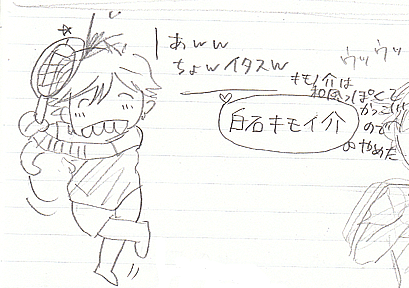 あww
ちょwイタスw
ウッウッ
キモノ介は
和風っぽくて
かっこいい
ので
やめた
白石キモイ介